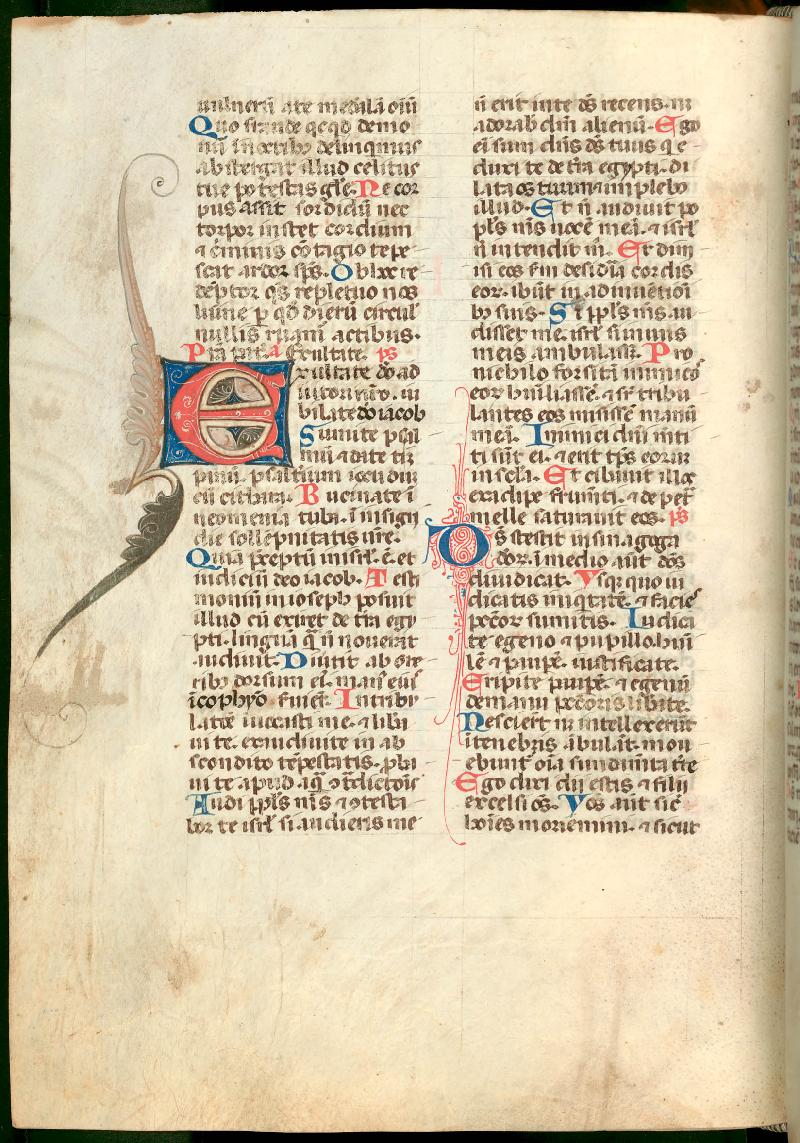 uulnerū
Quo fraude
ab stergat illud celitus
tue potestas gl̄e. Ne cor
pus assit sordidū nec
torpor instet cordium
⁊ c̄minis cōtagio tepe
scat ardor sp̄s. Ob hoc re
dēptor qs repleto nos
nullis ruant actibus.
Exultate. ps
Exultate deo ad
iutori nr̄o. iu
bilate deo iacob
Sumite psal
mū ⁊ date tim
panū. psaltium iocundum
cū cithara. Bucinate ī
neomenia tuba. ī insigni
die sollēpnitatis ur̄e.
Quia p̄ceptū in isrl̄. ē. et
iudiciū deo iacob. Testi
moniū in ioseph posuit
illud cū exiret de tr̄a egy
pti. linguā q̄ n̄ nouerat
audiuit. Diutit ab one
ribꝫ dorsum ei. manꝰ eiꝰ
ī cophyno seruier̄. In tribu
latōe inuocasti me. ⁊ libaui
te. exaudiui te in ab
scondito tēpestatis. pbaui
te apud aq̄ ɔtradictōis
Audi ppl̄s mꝰ ⁊ ɔtesta
bor te isrl̄ si audieris me
n̄ erit in te ds̄ recens. n̄
adorab deū alienū. Ego
ei sum dn̄s ds̄ tuus q e
duxi te de tr̄a egypti. di
lata os tuum ⁊ implebo
illud. Et n̄ audiuit po
pl̄s mꝰ uocē meā. ⁊ isrl̄
n̄ intendit m̄. Et dimi
si eos sm̄ desidia cordis
eor. ibūt in adinuētiōi
bꝫ suis. Si ppl̄s mꝰ au
disset me. isrl̄ si in uiis
meis ambulass̄. Pro
nichilo forsitā inimicos
eor humiliassē. ⁊ sr̄ tribu
lantes eos misissē manū
meā. Inimici dn̄i mēti
ti sūt ei. ⁊ erit tp̄s eorum
in sc̄la. Et cibauit illos
ex adipe frumēti. ⁊ de petra
melle saturauit eos. ps
Ds̄ stetit in sinagoga
deor. ī medio aut̄ deos
diiudicat. Vsq quo iu
dicatis iniqtatē. ⁊ facies
peccator sumitis. Iudica
te egeno ⁊ pupillo. humi
lē ⁊ pauperē. iustificate.
Eripite paupeē. ⁊ egenū
de manu peccatoris libate.
Nescierūt nec intellexerūt
ī tenebris ābulāt. mou
ebunt̄ oīa fundamēta tr̄e
Ego dixi dii estis ⁊ filii
excelsi oēs. Vos aut̄ sic̄
hoīes moriemini. ⁊ sicut